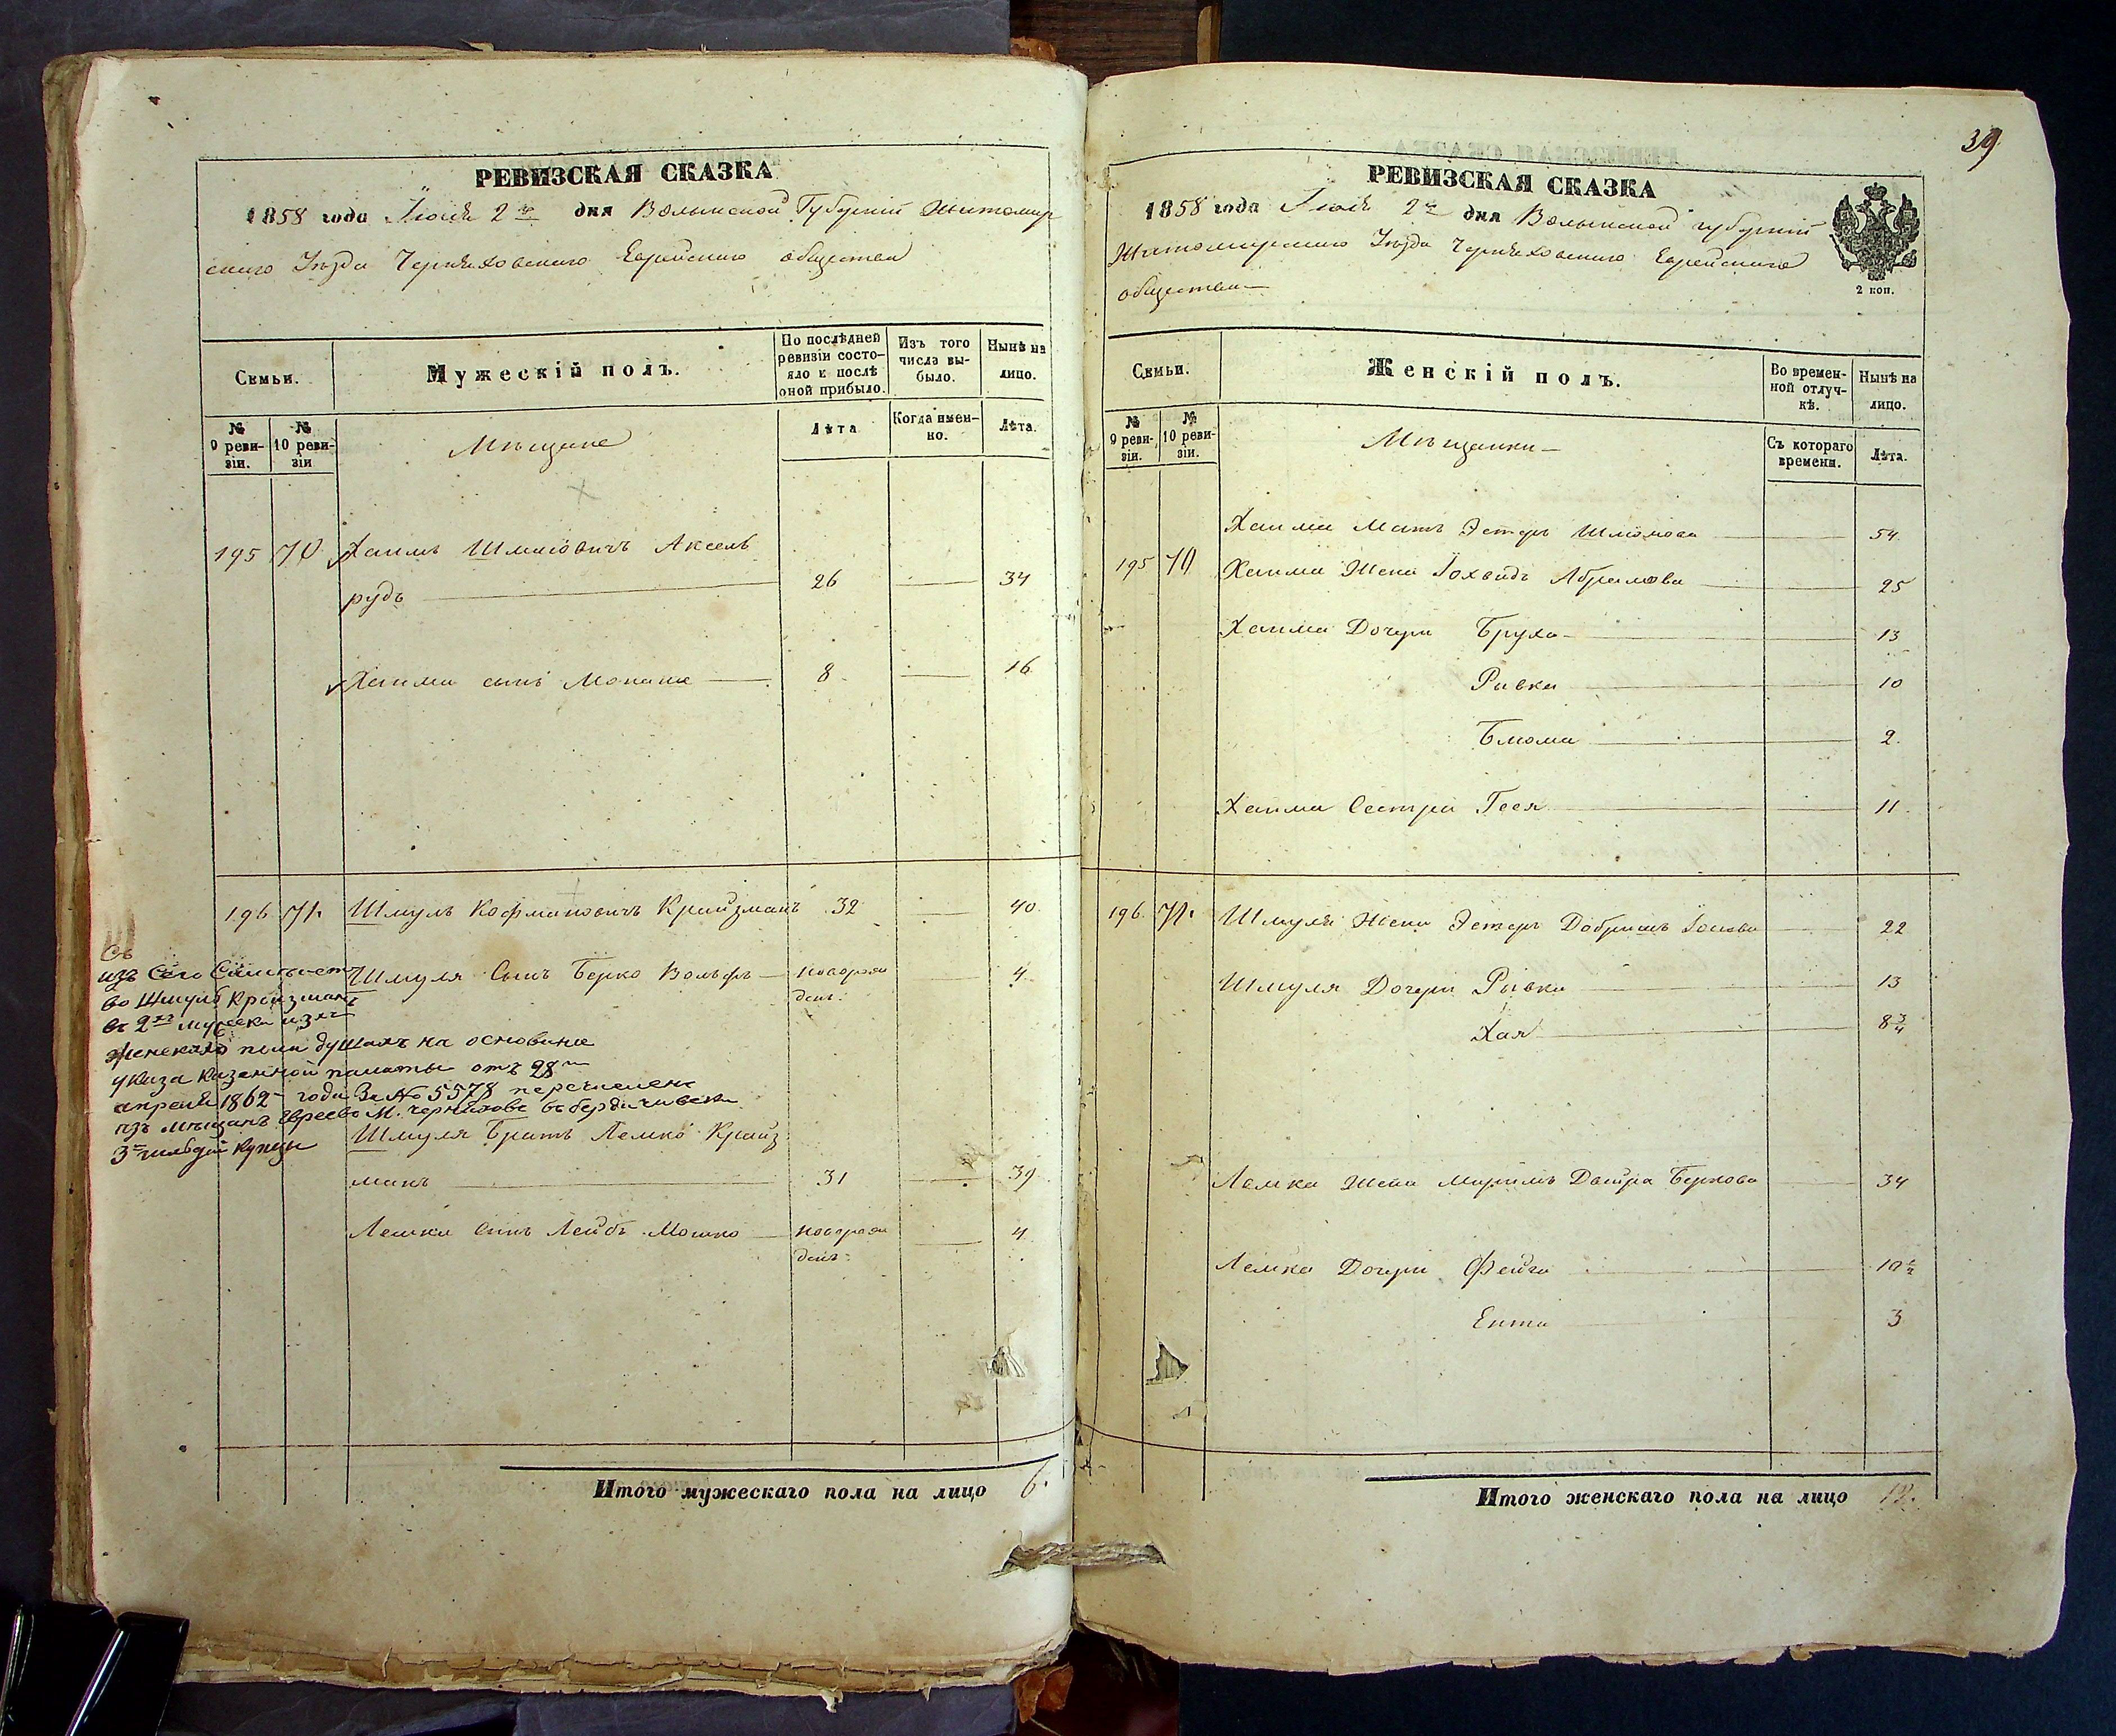 РЕВИЗСКАЯ СКАЗКА
1858 года Іюня 2го дня Волынской Губерніи Житомир
скаго Уѣзда Черняховскаго Еврейскаго общества
Семьи.
Мужескій полъ.
По послѣдней ревизіи состояло и послѣ оной прибыло.
Изъ того числа выбыло.
Нынѣ на лицо.
№ 9 ревизіи.
№ 10 ревизіи
Мѣщане
Лѣта
Когда именно.
Лѣта.
195 70 Хаимъ Аксель
рудъ 26 34
Хаима сынъ 8 16
196 71. Шмуль Кофмановичъ Крайзманъ 32 40.
Шмуля Сынъ Берко Вольфъ новорож 4.
денъ.
Съ
изъ сего Семейст
во Шмуль Крайзманъ
въ 2хъ мужска и 3хъ
женскаго пола душахъ на основаніе
указа казенной палаты отъ 28го
апреля 1862 года За № 5578 перечисленъ
изъ мѣщанъ Евреевъ М. Черняхова въ бердичивски
3й гильдіи купцы
Шмуля Братъ Лемко Крайз
манъ 31 39
Лемка Сынъ Лейбъ Мошко новорож 4
денъ.
Итого мужескаго пола на лицо 6.
39
РЕВИЗСКАЯ СКАЗКА
1858 года Іюня 2го дня Волынской губерніи
Житомирскаго Уѣзда Черняховскаго Еврейскаго
общества
2 коп.
Семьи.
Женскій полъ.
Во временной отлучкѣ.
Нынѣ на лицо.
№ 9 ревизіи.
№ 10 ревизіи.
Мѣщанки
Съ котораго времени.
Лѣта.
Хаима Мать Эстеръ Шлiомова 54
195 70 Хаима Жена Іохвидъ Абрамова 25
Хаима Дочери Бруха 13
Ривка 10
Блюма 2.
Хаима Сестра Гася 11.
196 71. Шмуля Жена Эстеръ Добришъ 22
Шмуля Дочери Рывка 13
Хая 8 3/4
Лемка Жена Миримъ Двойра Беркова 34
Лемка Дочери Фейга 10 1/2
Ента 3
Итого женскаго пола на лицо 12.